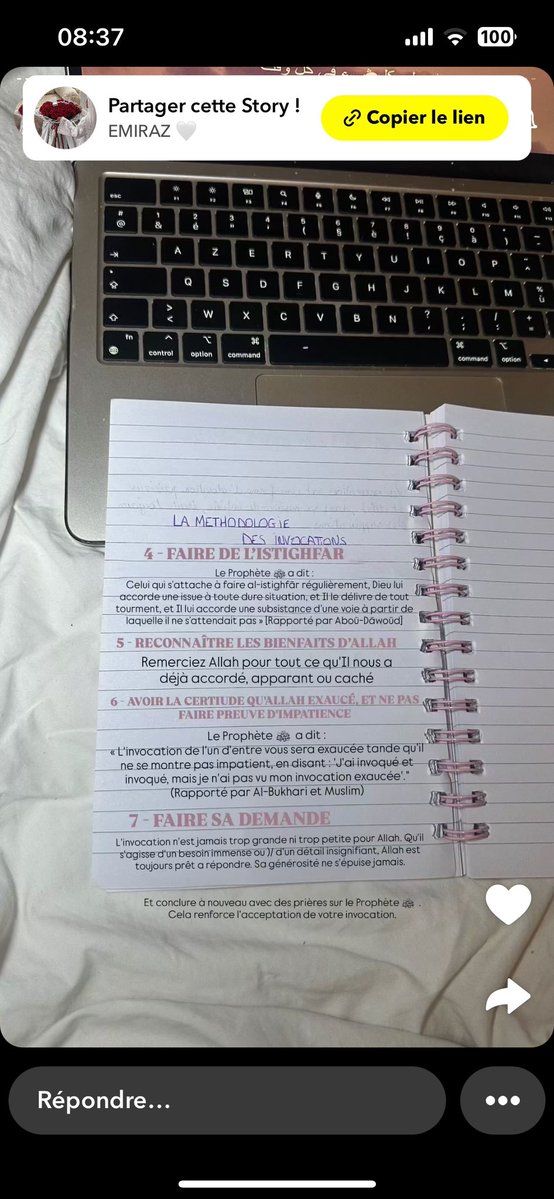 08:37
100
Partager cette Story !
EMIRAZ 🤍
Copier le lien
esc
F1 F2 F3 F4 F5 F6 F7 F8 F9
# @ 1 & 2 é 3 " 4 ' 5 ( 6 § 7 è 8 ! 9 ç 0 à
A Z E R T Y U I O P
Q S D F G H J K L M % ù
> < W X C V B N ? , . ; / : + =
fn control option command command option
LA METHODOLOGIE
DES INVOCATIONS
4 - FAIRE DE L'ISTIGHFAR
Le Prophète ﷺ a dit :
Celui qui s'attache à faire al-istighfâr régulièrement, Dieu lui
accorde une issue à toute dure situation, et Il le délivre de tout
tourment, et Il lui accorde une subsistance d'une voie à partir de
laquelle il ne s'attendait pas » [Rapporté par Aboû-Dâwoûd]
5 - RECONNAÎTRE LES BIENFAITS D'ALLAH
Remerciez Allah pour tout ce qu'Il nous a
déjà accordé, apparant ou caché
6 - AVOIR LA CERTIUDE QU'ALLAH EXAUCÉ, ET NE PAS
FAIRE PREUVE D'IMPATIENCE
Le Prophète ﷺ a dit :
« L'invocation de l'un d'entre vous sera exaucée tande qu'il
ne se montre pas impatient, en disant : 'J'ai invoqué et
invoqué, mais je n'ai pas vu mon invocation exaucée'."
(Rapporté par Al-Bukhari et Muslim)
7 - FAIRE SA DEMANDE
L'invocation n'est jamais trop grande ni trop petite pour Allah. Qu'il
s'agisse d'un besoin immense ou )/ d'un détail insignifiant, Allah est
toujours prêt a répondre. Sa générosité ne s'épuise jamais.
Et conclure à nouveau avec des prières sur le Prophète ﷺ .
Cela renforce l'acceptation de votre invocation.
Répondre...